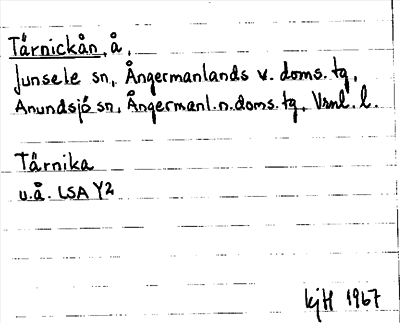 Tärnickån, å,
Junsele sn, Ångermanlands v. doms. tg,
Anundsjö sn, Ångermanl. n. doms. tg, Vrnl. l.
Tärnika
u.å. LSA Y2
kjH 1967